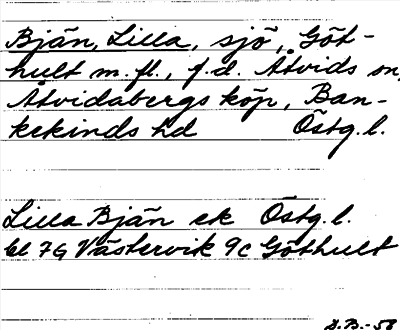 Bjän, Lilla, sjö, Göt-
hult m.fl., f.d. Åtvids sn,
Åtvidabergs köp, Ban-
kekinds hd Östg.l.
Lilla Bjän ek Östg.l.
bl 7G Västervik 9c Göthult
D.B.-58